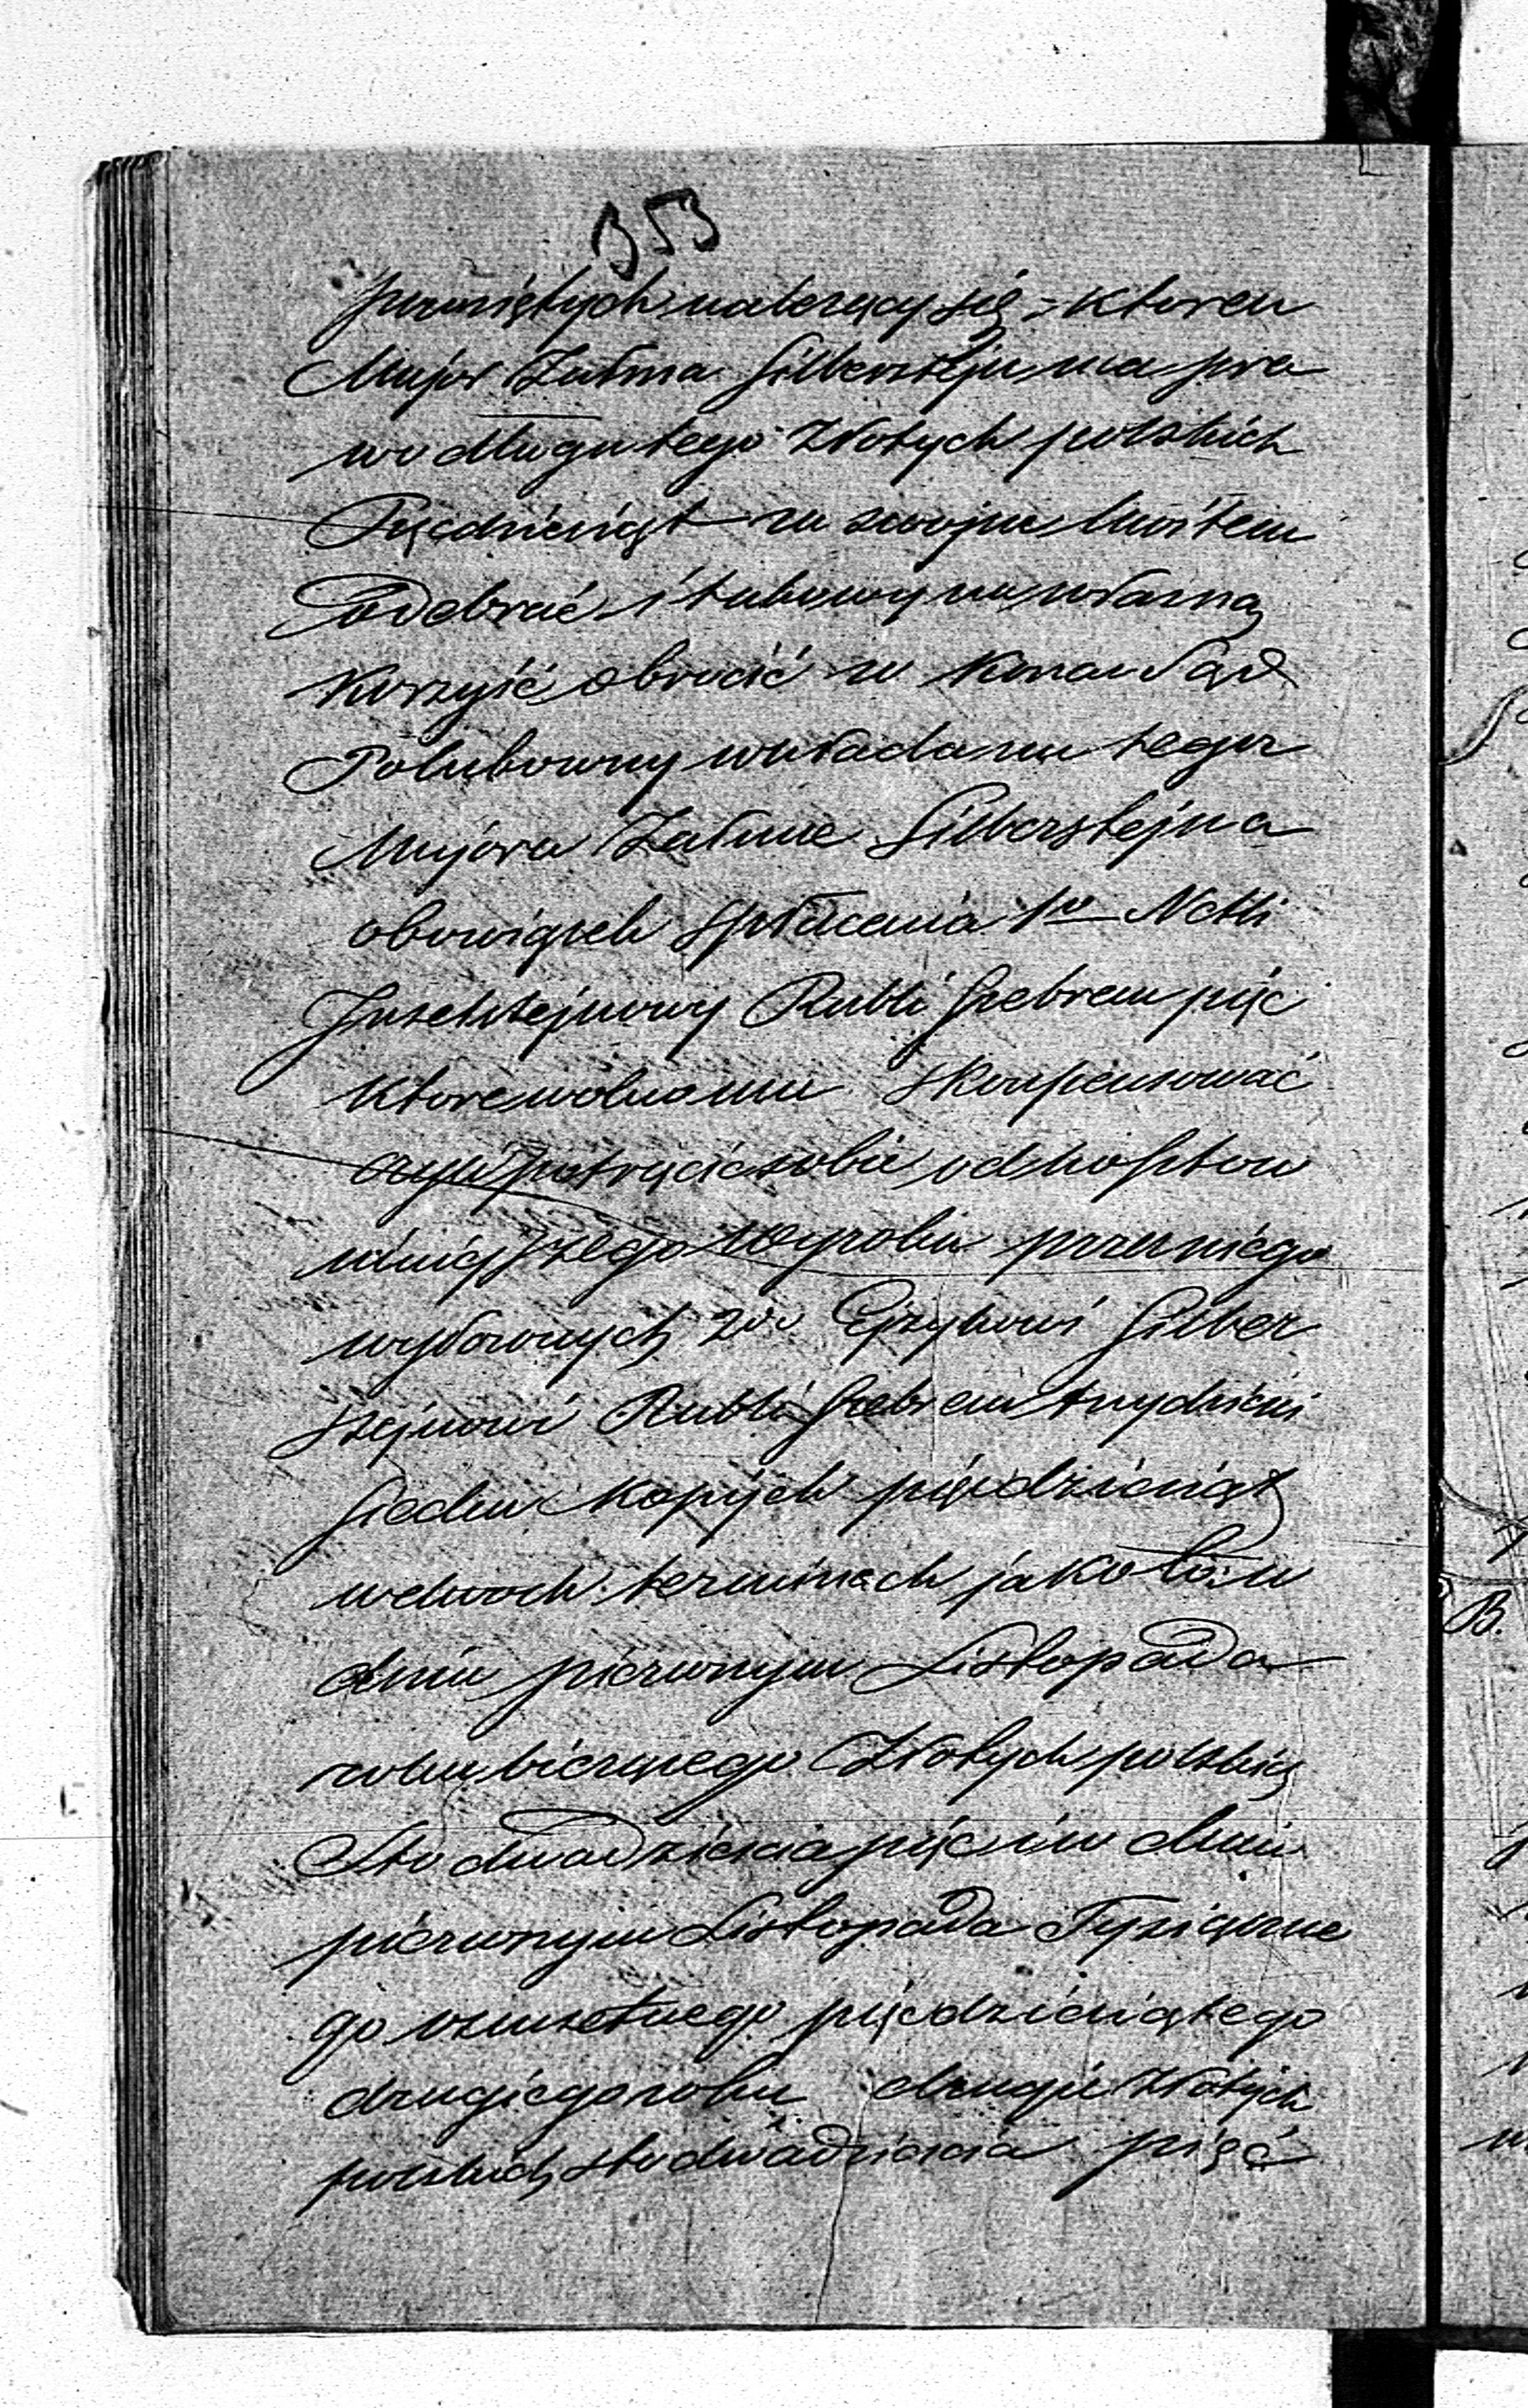 353
pomniętych należący się – któren
Major Zalma Silbersztejn ma pra
wo długu tego Złotych polskich
Pięćdziesiąt za swojem kwitem
Odebrać i takowy na własną
Korzyść obrócić w koncu Sąd
Polubowny wkłada na tegoż
Majora Zalme Silbersztejna
obowiązek spłacenia 1º Netli
Rubli srebrem pięć
które wolno mu skompensować
czyli potrącić sobie od kosztow
niniejszego Wyrobu przez niego
wyłożonych 2do Ejzykowi Silber
sztejnowi Rubli srebrem trzydzieści
siedm kopijek pięćdziesiąt
w dwoch terminach jako to: w
dniu pierwszym Listopada
roku bieżącego Złotych polskich
Sto dwadzieścia pięć i w dniu
pierwszym Listopada Tysiączne
go osmsetnego pięćdziesiątego
drugiego roku drugie złotych
polskich sto dwadzieścia pięć
B.